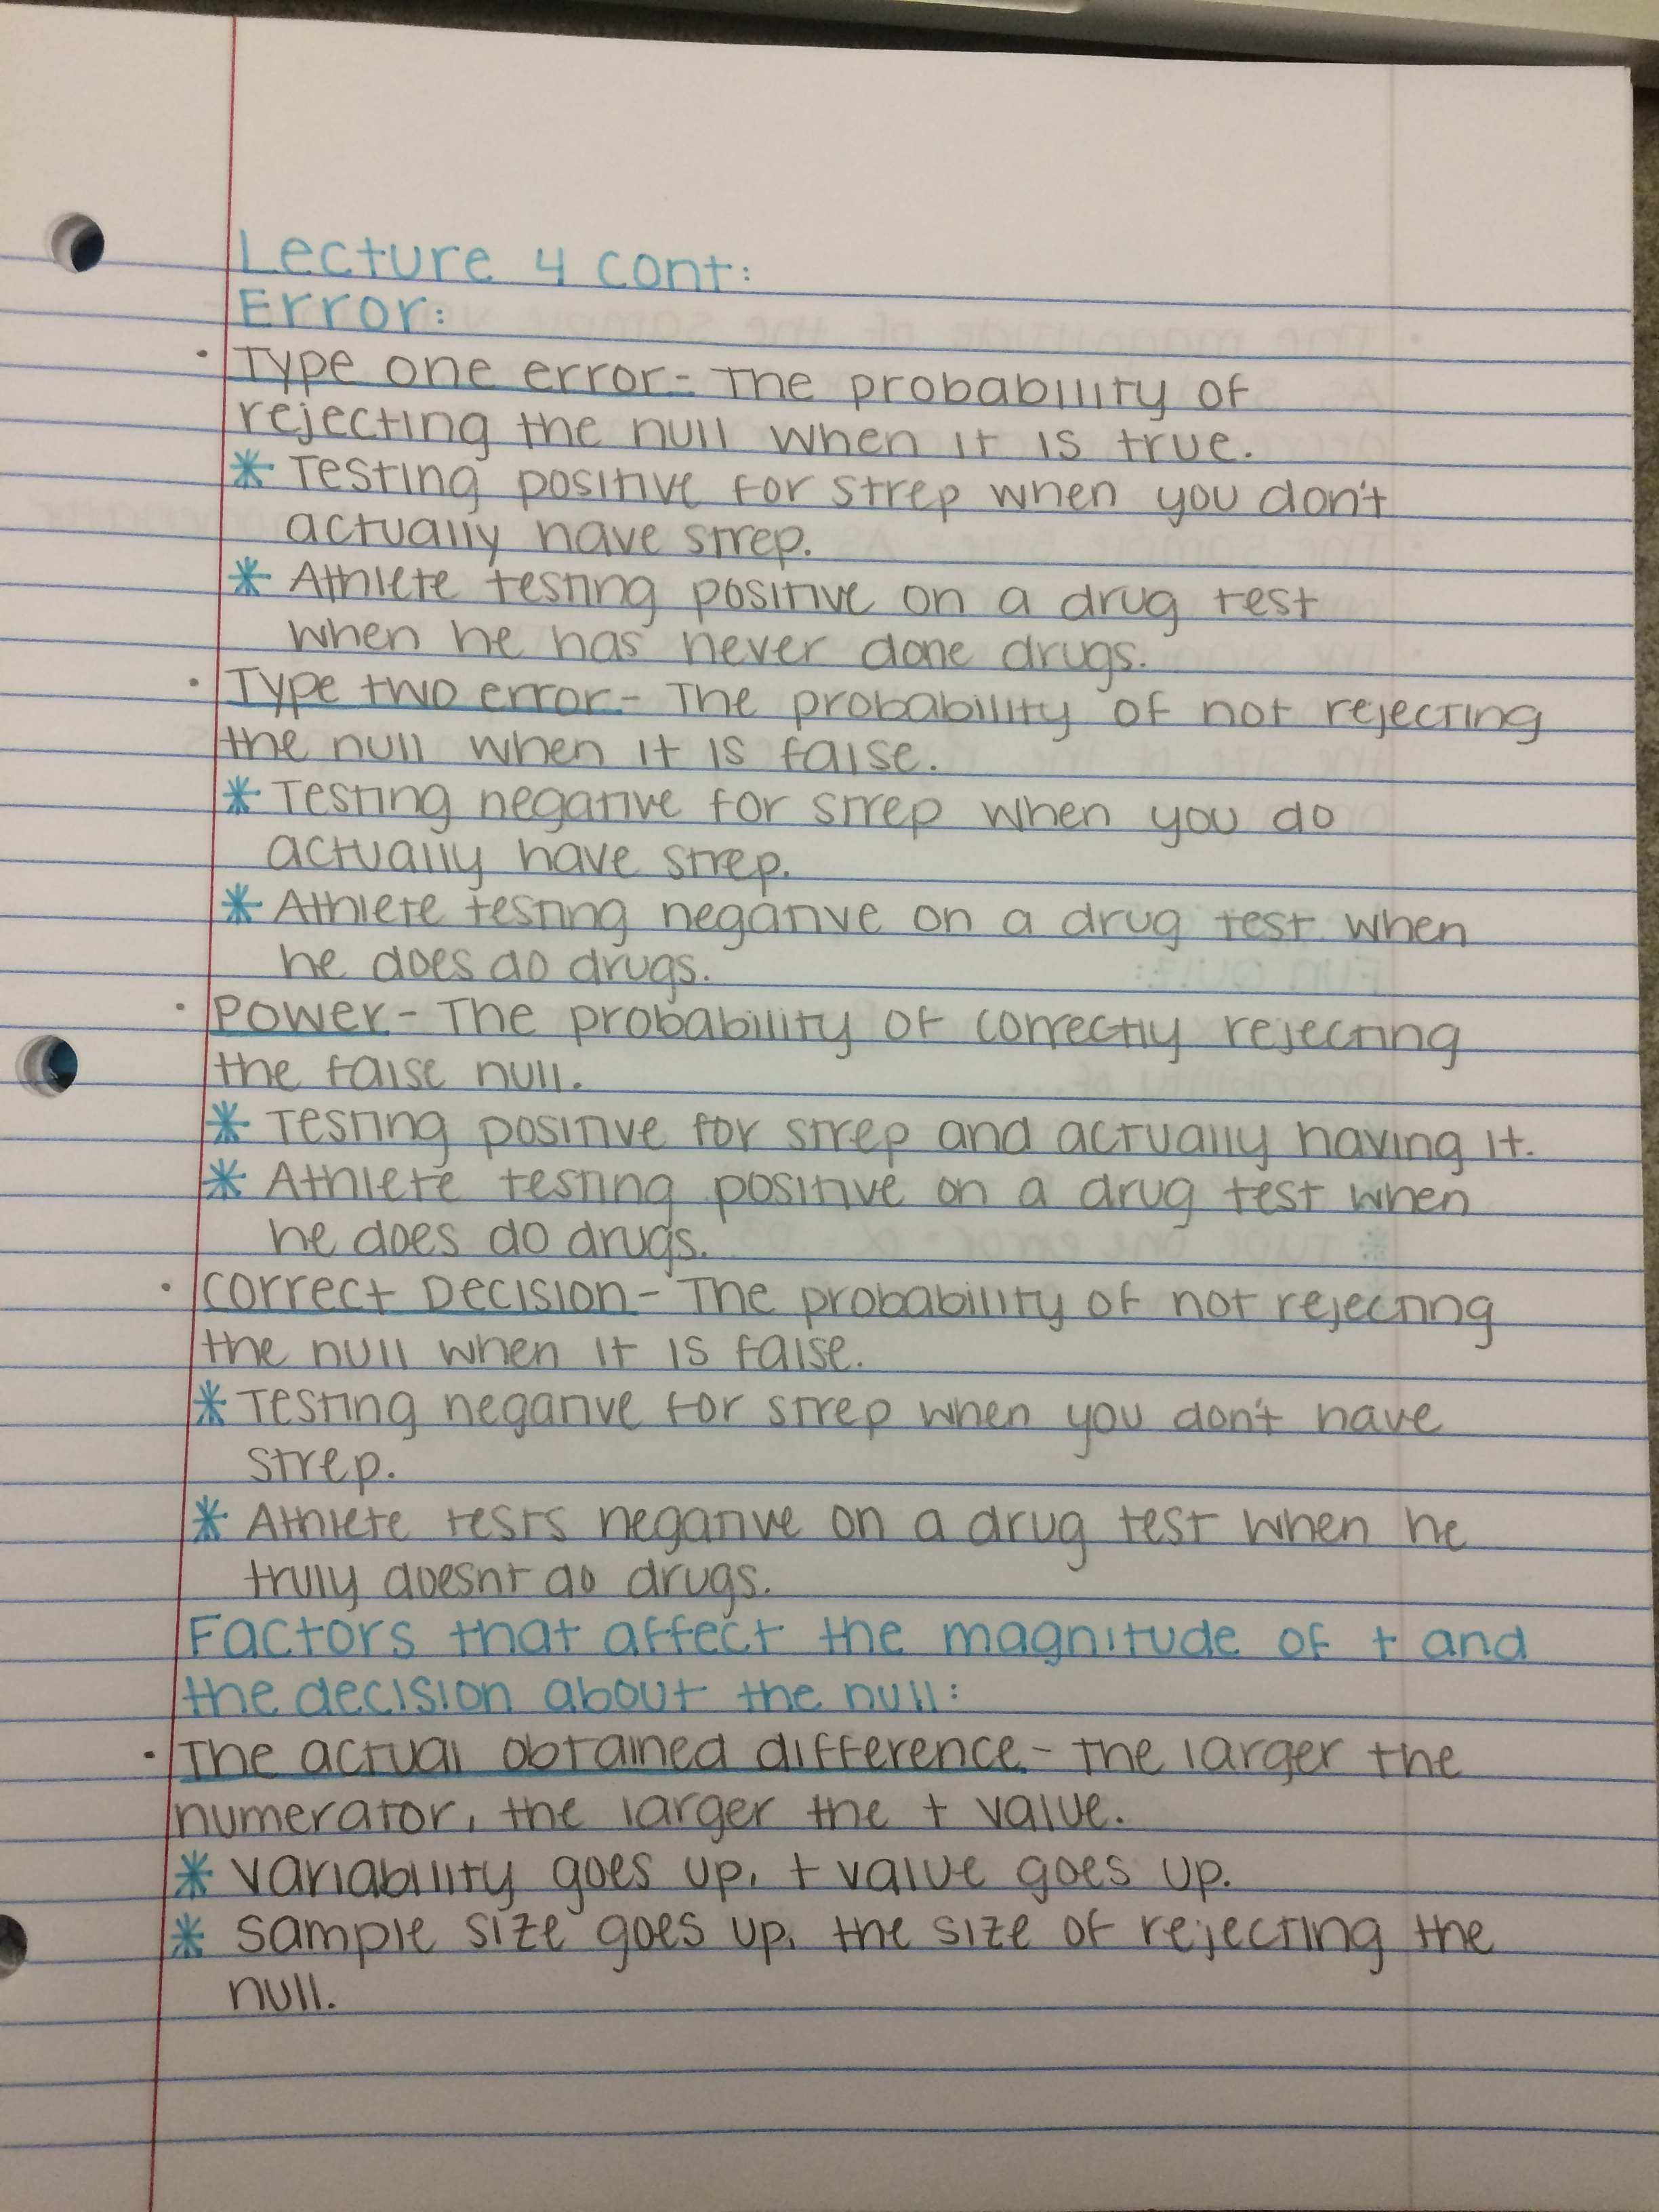 Lecture 4 cont:
Error:
• Type one error - The probability of
rejecting the null when it is true.
* Testing positive for strep when you don't
actually have strep.
* Athlete testing positive on a drug test
when he has never done drugs.
• Type two error - The probability of not rejecting
the null when it is false.
* Testing negative for strep when you do
actually have strep.
* Athlete testing negative on a drug test when
he does do drugs.
• Power - The probability of correctly rejecting
the false null.
* Testing positive for strep and actually having it.
* Athlete testing positive on a drug test when
he does do drugs.
• Correct Decision - The probability of not rejecting
the null when it is false.
* Testing negative for strep when you don't have
strep.
* Athlete tests negative on a drug test when he
truly doesnt do drugs.
Factors that affect the magnitude of t and
the decision about the null:
• The actual obtained difference - The larger the
numerator, the larger the t value.
* Variability goes up, t value goes up.
* Sample size goes up, the size of rejecting the
null.